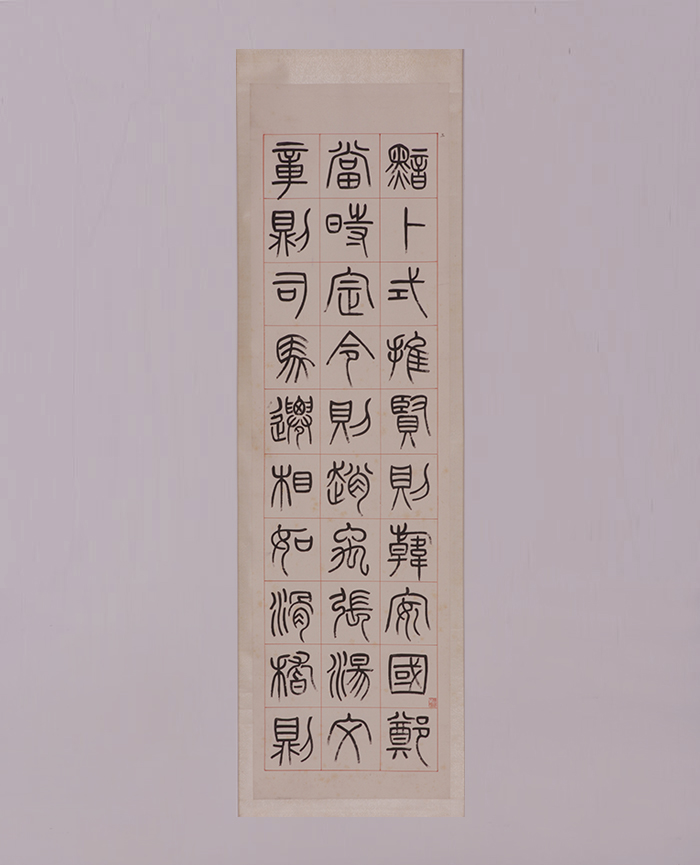 黯卜式推賢則韓安國鄭
當時定令則趙禹張湯文
章則司馬遷相如滑稽則